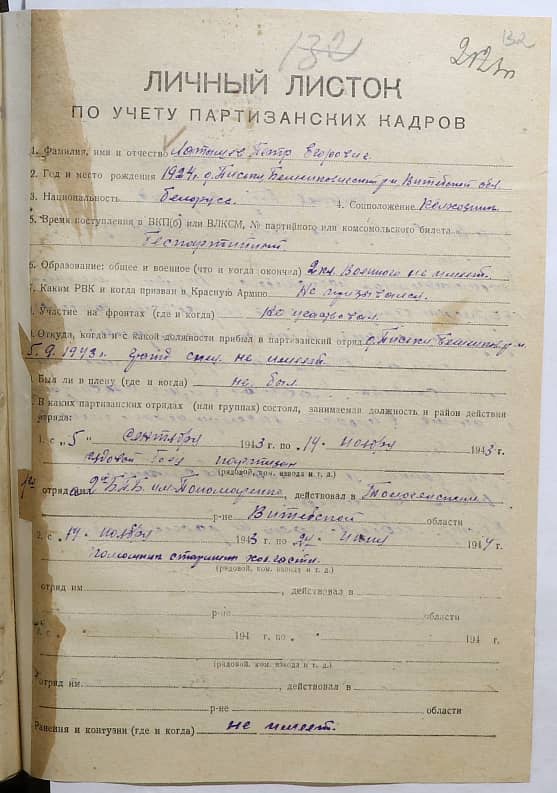 132
132
ЛИЧНЫЙ ЛИСТОК
ПО УЧЕТУ ПАРТИЗАНСКИХ КАДРОВ
1. Фамилия, имя и отчество Латышев Петр Егорович
2. Год и место рождения 1924г. д. Писки Бешенковичский р-н Витебской обл
3. Национальность белорусс. 4. Соцположение Колхозник
5. Время поступления в ВКП(б) или ВЛКСМ, № партийного или комсомольского билета
Беспартийный
6. Образование: общее и военное (что и когда окончил) 2 кл. Военного не имеет.
7. Каким РВК и когда призван в Красную Армию Не призывался.
Участие на фронтах (где и когда) Не участвовал.
Откуда, когда и с какой должности прибыл в партизанский отряд д. Писки
5.9.1943г. не имеет
Был ли в плену (где и когда) не был.
В каких партизанских отрядах (или группах) состоял, занимаемая должность и район действия
отряда:
1. с „5" сентября 1943 г. по „14" ноября 1943 г.
рядовой боец партизан
(рядовой, ком. взвода и т. д.)
отряд им. Пономаренко, действовал в
р-не Витебской области
2. с „14" ноября 1943 г. по „24" июня 1944 г.
помошник старшины хозчасти.
(рядовой, ком. взвода и т. д.)
отряд им. , действовал в
р-не области
с 194 г. по 194 г.
(рядовой, ком. взвода и т. д.)
отряд им. , действовал в
р-не области
Ранения и контузии (где и когда) не имеет.